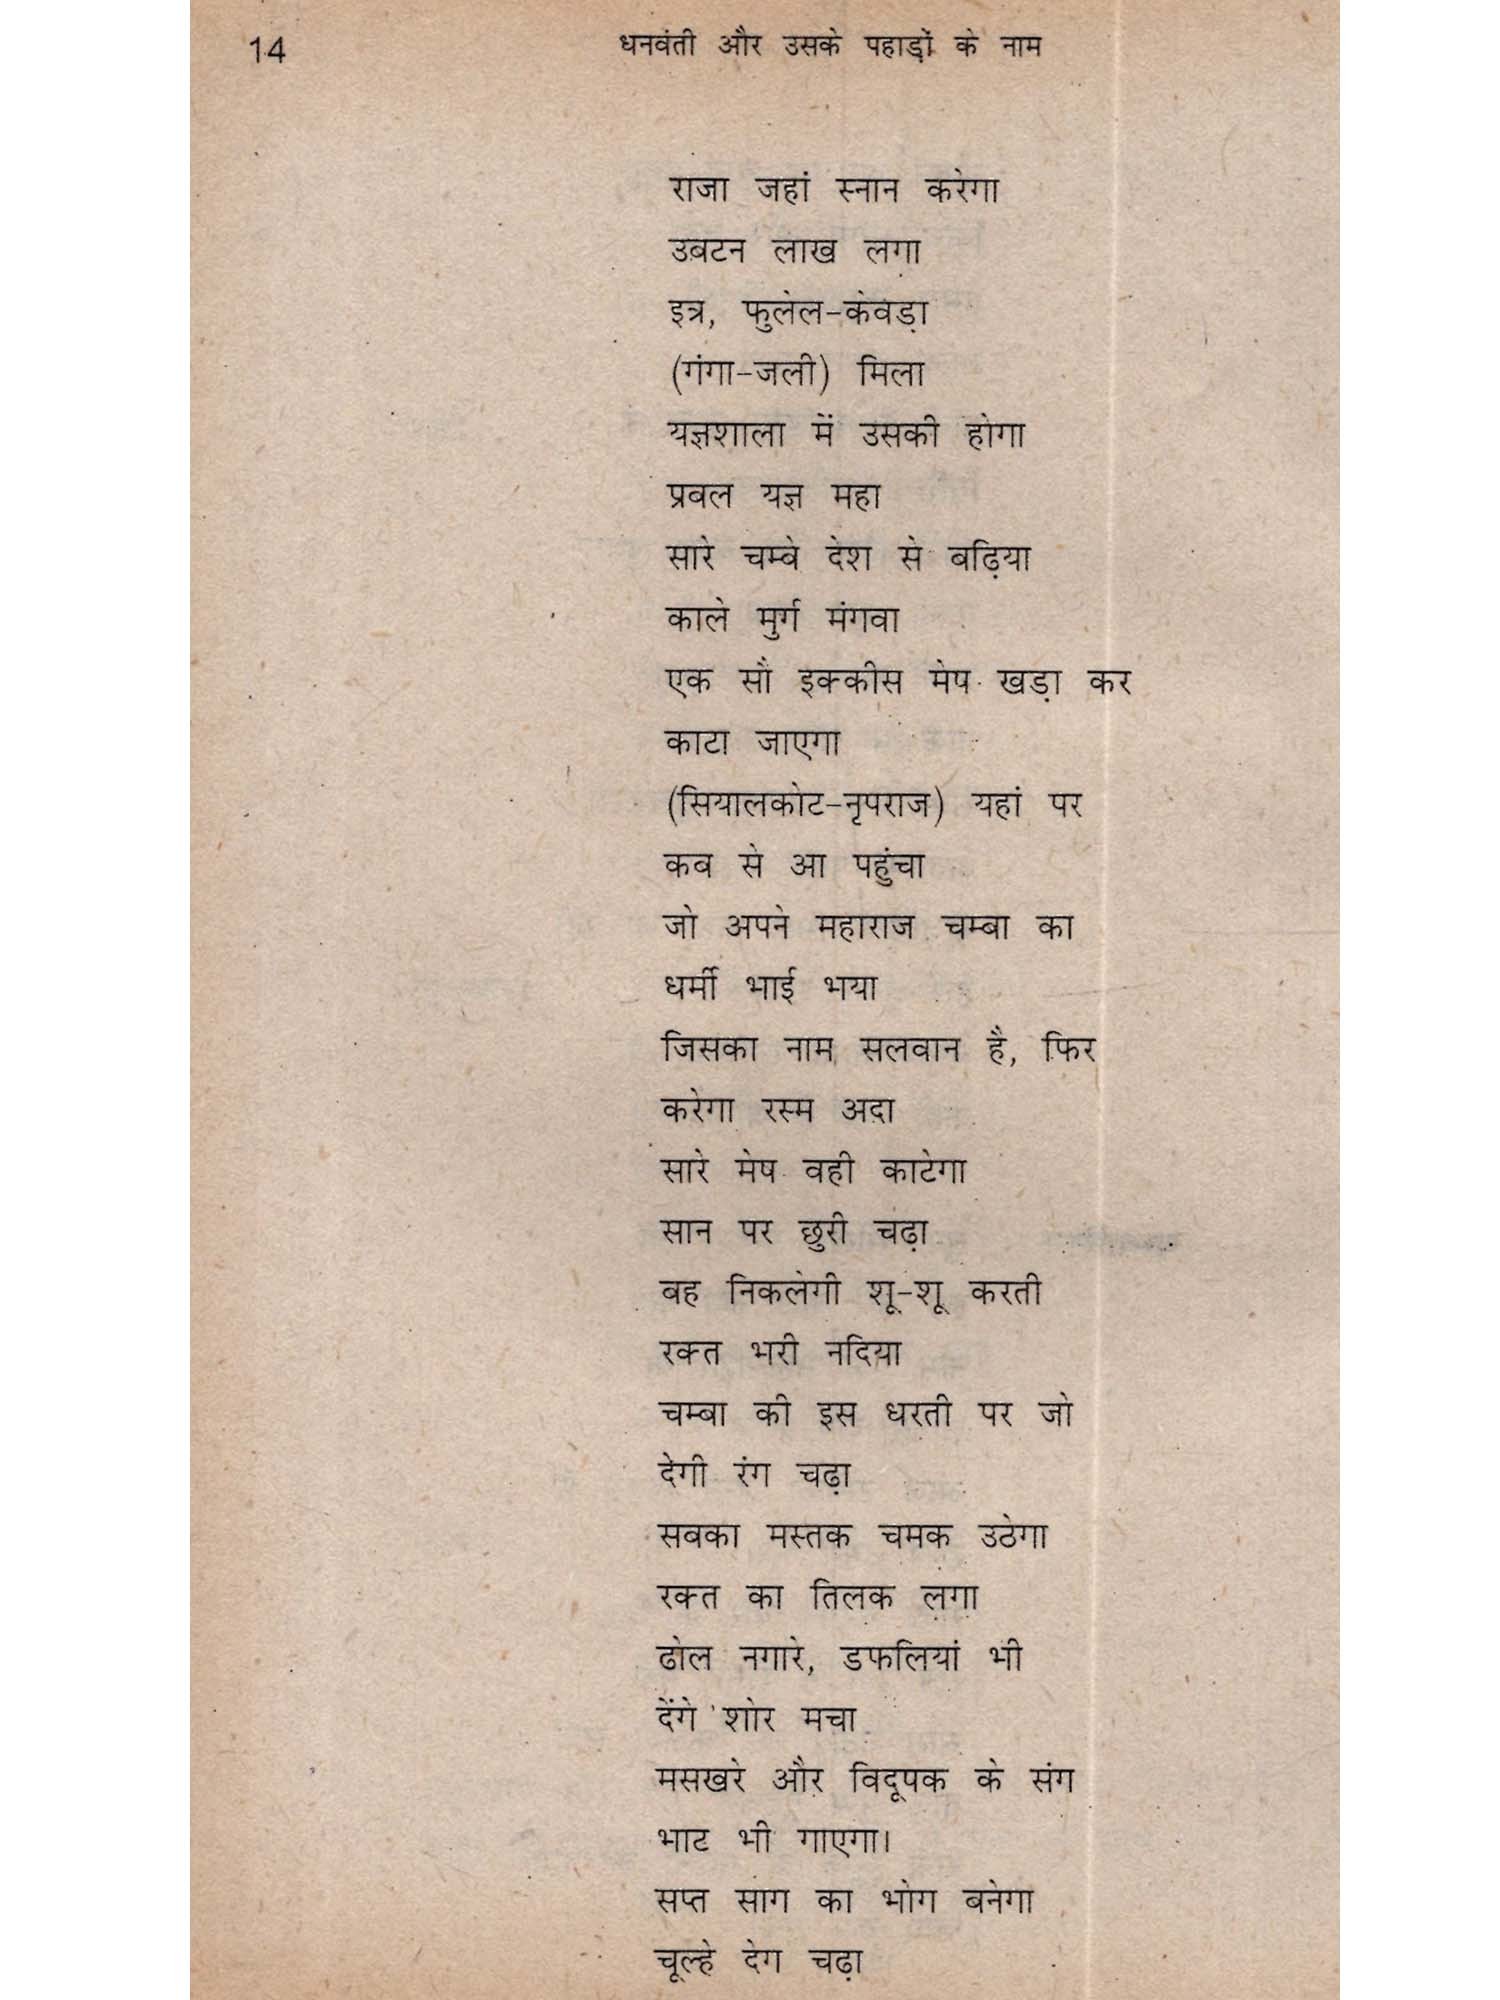 14
धनवंती और उसके पहाड़ों के नाम
राजा जहां स्नान करेगा
उबटन लाख लगा
इत्र, फुलेल-केवड़ा
(गंगा-जली) मिला
यज्ञशाला में उसकी होगा
प्रबल यज्ञ महा
सारे चम्बे देश से बढ़िया
काले मुर्ग मंगवा
एक सौ इक्कीस मेष खड़ा कर
काटा जाएगा
(सियालकोट-नृपराज) यहां पर
कब से आ पहुंचा
जो अपने महाराज चम्बा का
धर्मी भाई भया
जिसका नाम सलवान है, फिर
करेगा रस्म अदा
सारे मेष वही काटेगा
सान पर छुरी चढ़ा
बह निकलेगी शू-शू करती
रक्त भरी नदिया
चम्बा की इस धरती पर जो
देगी रंग चढ़ा
सबका मस्तक चमक उठेगा
रक्त का तिलक लगा
ढोल नगारे, डफलियां भी
देंगे शोर मचा
मसखरे और विदूषक के संग
भाट भी गाएगा।
सप्त साग का भोग बनेगा
चूल्हे देग चढ़ा